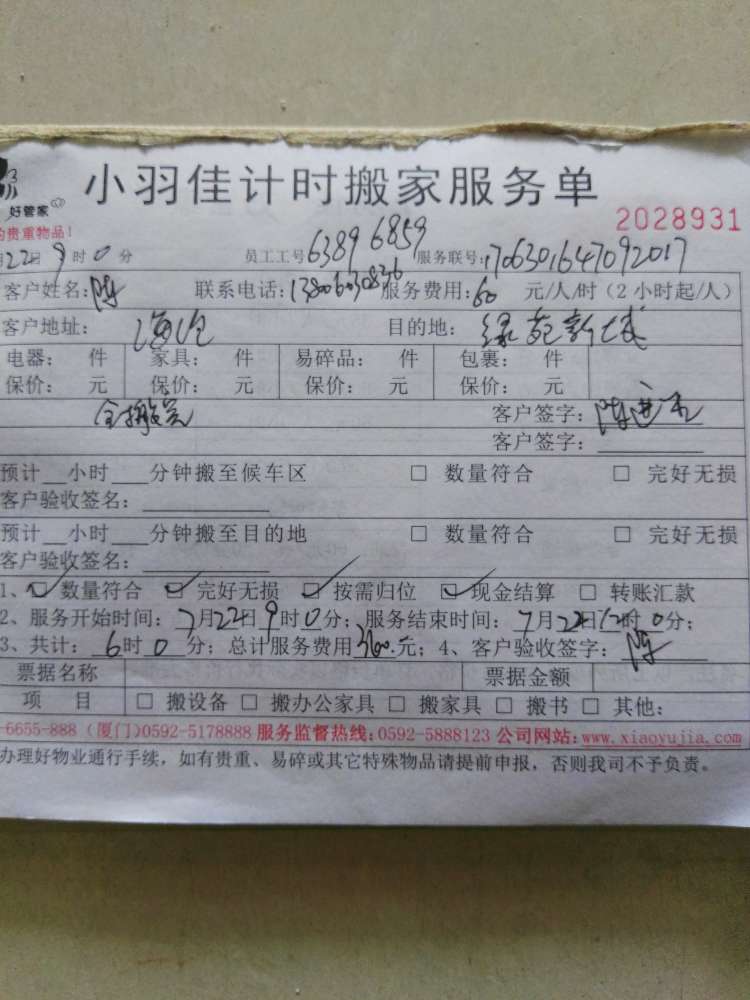 小羽佳计时搬家服务单
好管家
的贵重物品!
2028931
月22日9时0分 员工工号6389 6859 服务联号:1706301647092017
客户姓名:陈 联系电话:13806030836 服务费用:60 元/人/时(2小时起/人)
客户地址:海沧 目的地:绿苑新城
电器: 件 家具: 件 易碎品: 件 包裹: 件
保价: 元 保价: 元 保价: 元 保价: 元
全搬完 客户签字:陈
客户签字:
预计__小时___分钟搬至候车区 □ 数量符合 □ 完好无损
客户验收签名:
预计__小时___分钟搬至目的地 □ 数量符合 □ 完好无损
客户验收签名:
1、☑数量符合 ☑完好无损 ☑按需归位 ☑现金结算 □ 转账汇款
2、服务开始时间:7月22日9时0分;服务结束时间:7月22日12时0分;
3、共计:6时0分;总计服务费用360元;4、客户验收签字:陈
票据名称 票据金额
项 目 □ 搬设备 □ 搬办公家具 □ 搬家具 □ 搬书 □ 其他:
-6655-888(厦门)0592-5178888 服务监督热线:0592-5888123 公司网站:www.xiaoyujia.com
办理好物业通行手续,如有贵重、易碎或其它特殊物品请提前申报,否则我司不予负责。